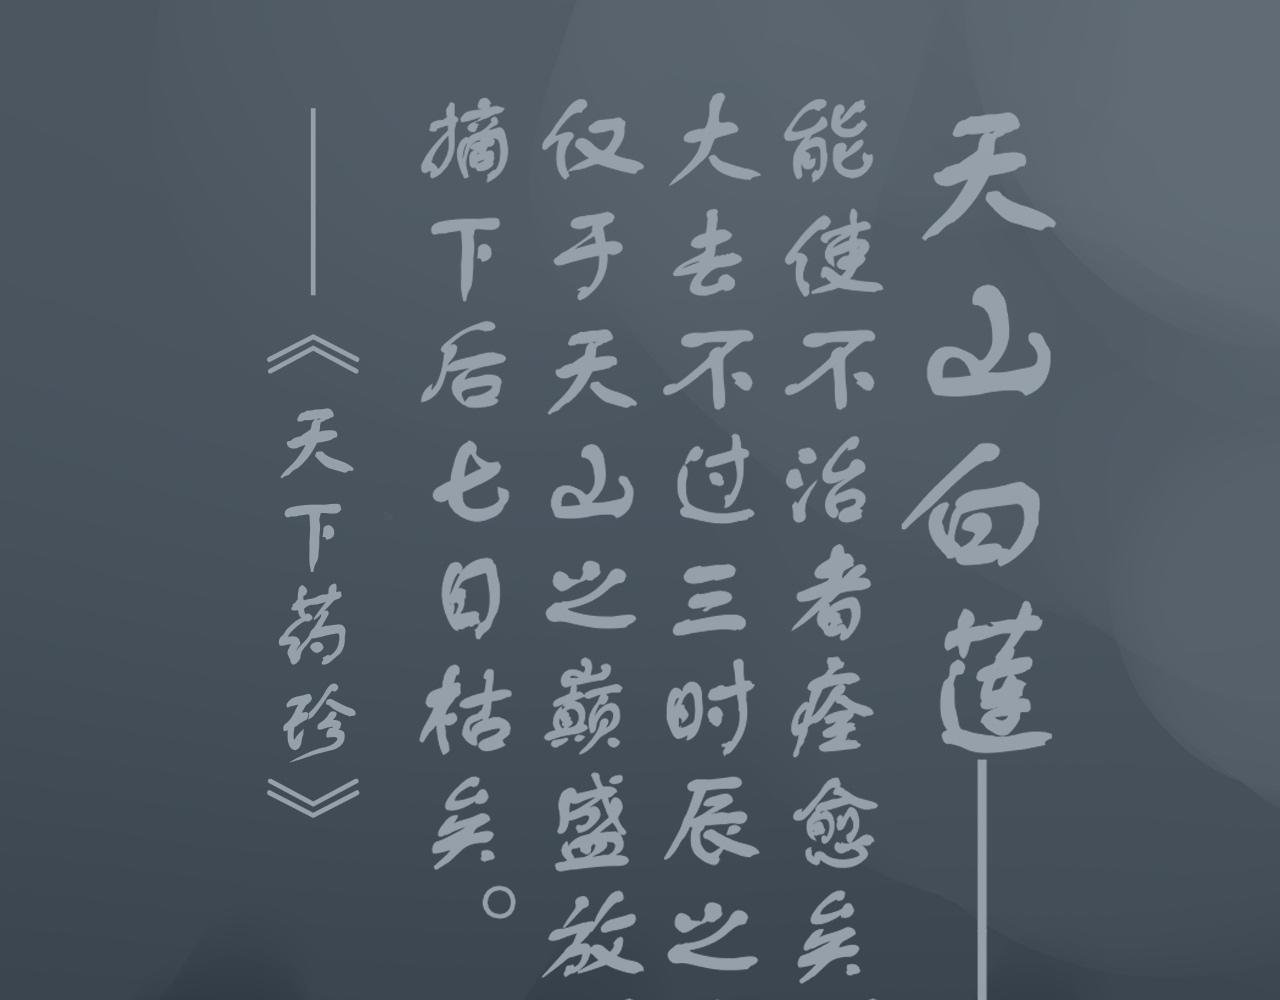 天山白莲——
能使不治者痊愈矣
大去不过三时辰之
仅于天山之巅盛放
摘下后七日枯矣。
——《天下药珍》